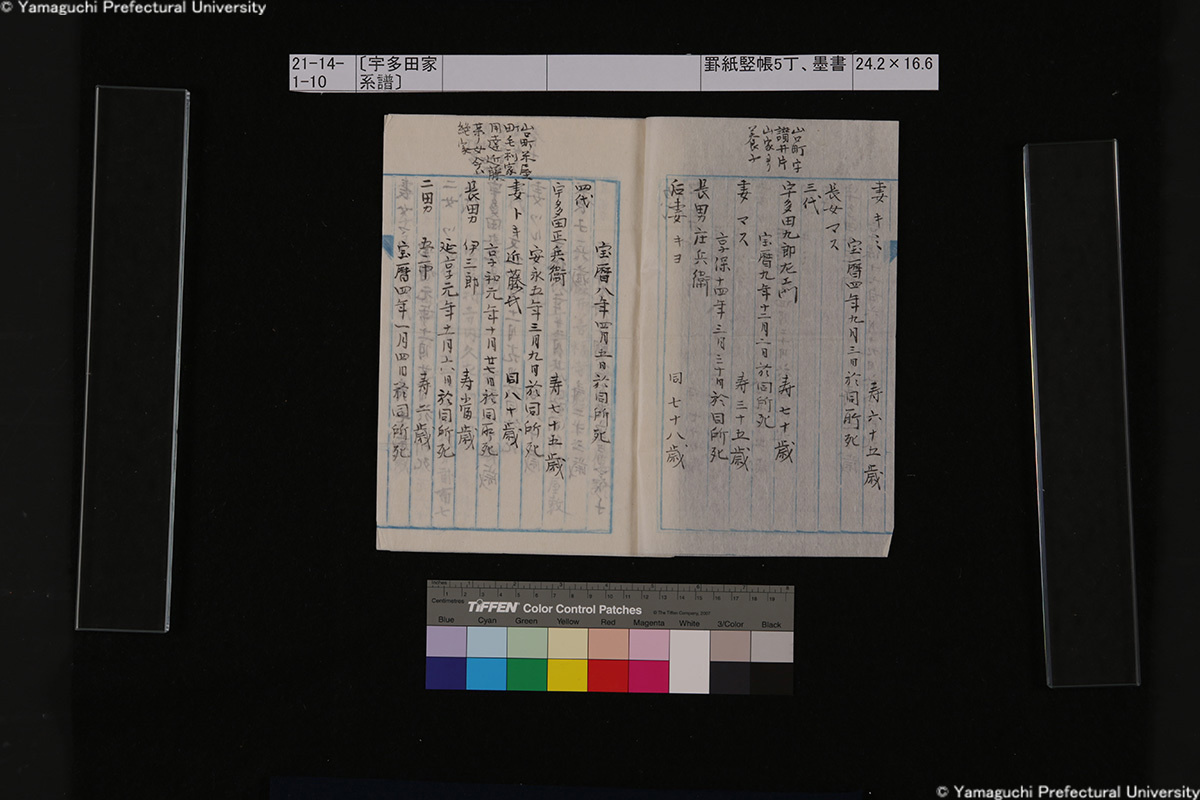 © Yamaguchi Prefectural University
21-14-1-10
〔宇多田家系譜〕
罫紙竪帳5丁、墨書
24.2×16.6
妻 キミ 寿六十五歳
宝暦四年九月三日於同所死
長女 マス
三代
山口町字
讃井片
山家ヨリ
養子
宇多田九郎左エ門 寿七十歳
宝暦九年十二月二日於同所死
妻 マス 寿三十五歳
享保十四年三月三十日於同所死
長男 庄兵衛
后妻 キヨ 同七十八歳
宝暦八年四月五日於同所死
四代
宇多田正兵衛 寿七十五歳
安永五年三月九日於同所死
山口町
田毛利家
用達近藤
妻 トキ 近藤氏 同八十歳
享和元年十月廿七日於同所死
長男 伊三郎 寿 歳
延享元年十一月六日於同所死
二男 寿六歳
宝暦四年一月四日於同所死
inches
Centimetres
TIFFEN Color Control Patches
© The Tiffen Company, 2007
Blue Cyan Green Yellow Red Magenta White 3/Color Black
© Yamaguchi Prefectural University